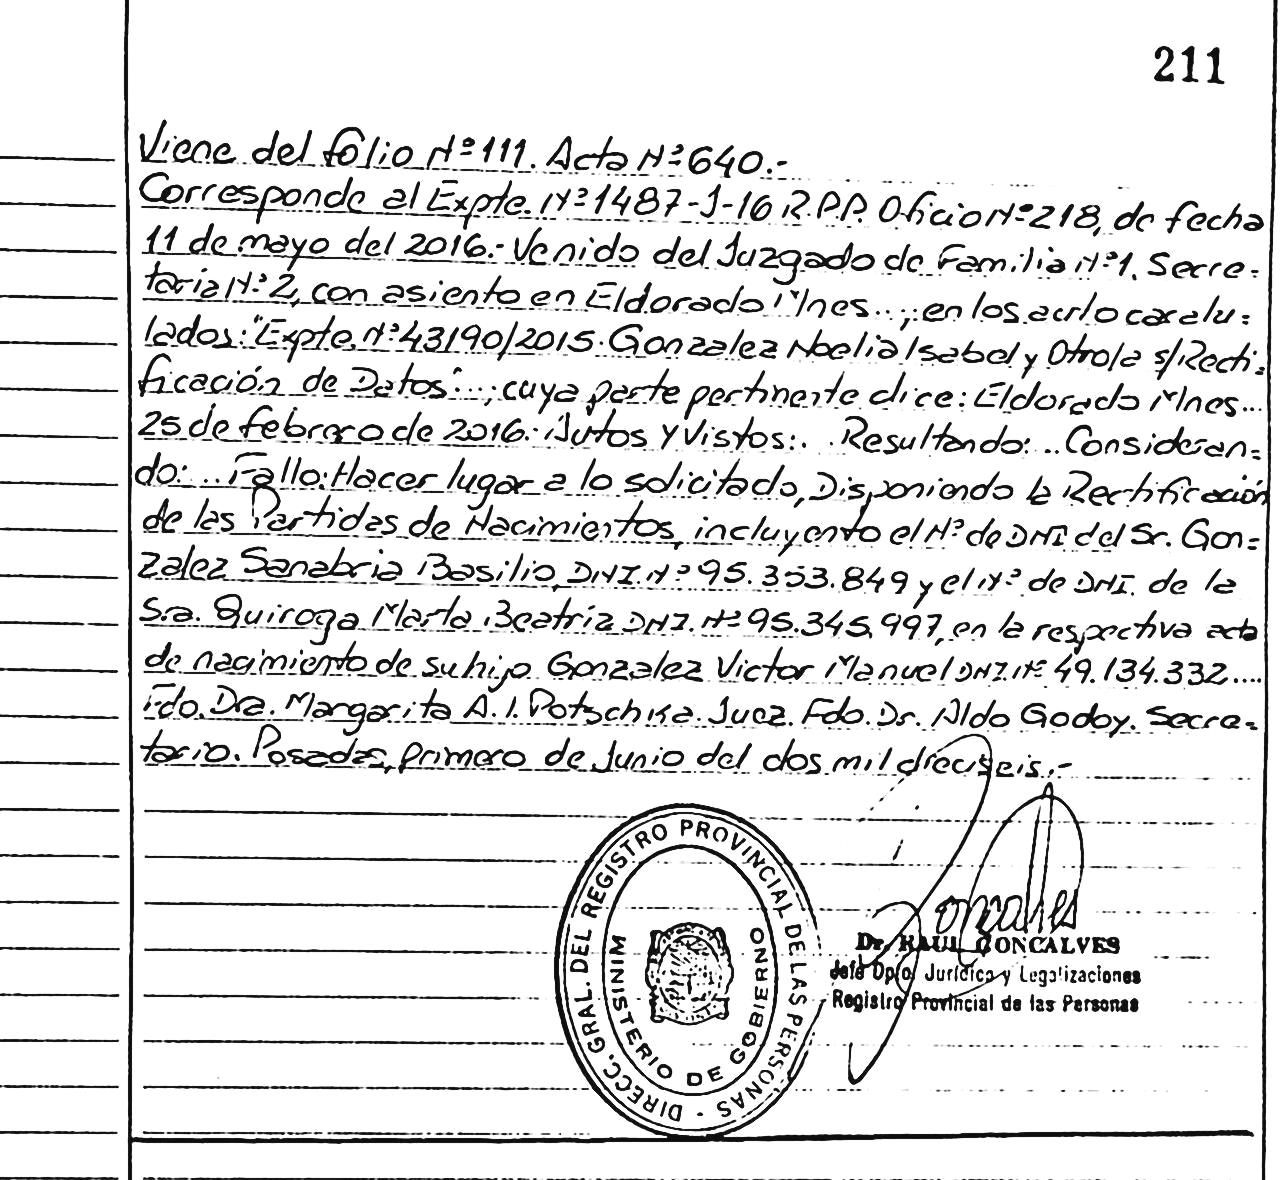 211
Viene del folio Nº 111. Acta Nº 640.-
Corresponde al Expte. Nº 1487-J-16 R.P.P. Oficio Nº 218, de fecha
11 de mayo del 2016.- Venido del Juzgado de Familia Nº 1, Secre=
taria Nº 2, con asiento en Eldorado Mnes...; en los autos caratu=
lados: "Expte. Nº 43190/2015. Gonzalez Noelia Isabel y Otro/a s/Recti=
ficación de Datos"...; cuya parte pertinente dice: Eldorado Mnes...
25 de febrero de 2016.- Autos y Vistos:.. Resultando: ..Consideran=
do: ... Fallo: Hacer lugar a lo solicitado, Disponiendo la Rectificación
de las Partidas de Nacimientos, incluyento el Nº de DNI del Sr. Gon=
zalez Sanabria Basilio, DNI. Nº 95.353.849 y el Nº de DNI. de la
Sra. Quiroga Marta Beatríz DNI. Nº 95.345.997, en la respectiva acta
de nacimiento de su hijo Gonzalez Victor Manuel DNI. Nº 49.134.332....
Fdo. Dra. Margarita A. I. Potschka. Juez. Fdo. Dr. Aldo Godoy. Secre=
tario. Posadas, primero de Junio del dos mil dieciseis.-
DIRECC. GRAL. DEL REGISTRO PROVINCIAL DE LAS PERSONAS -
MINISTERIO DE GOBIERNO
Dr. RAUL GONCALVES
Jefe Dpto. Jurídico y Legalizaciones
Registro Provincial de las Personas